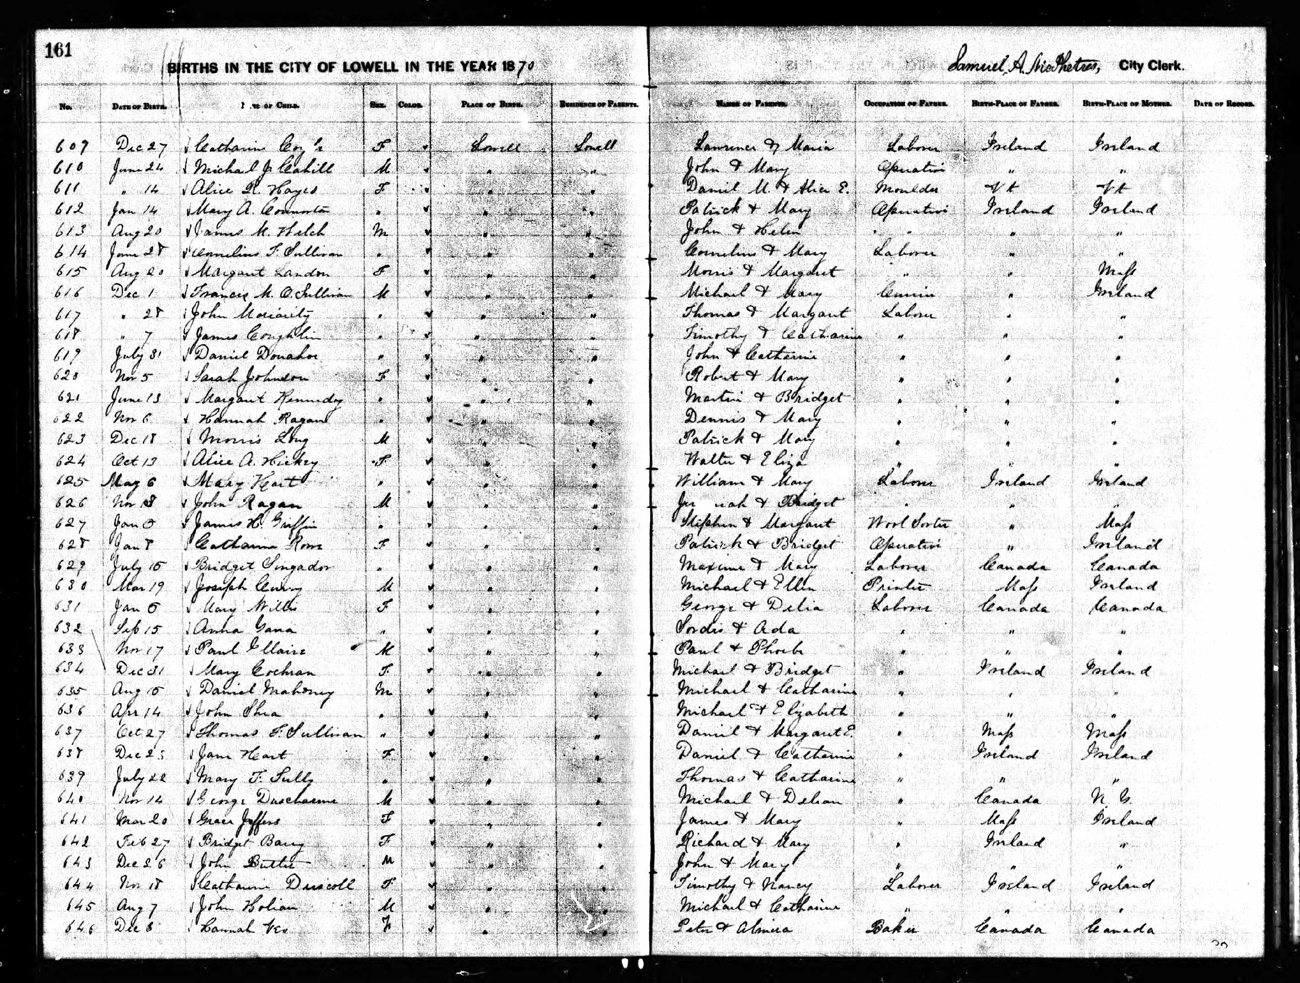 161
BIRTHS IN THE CITY OF LOWELL IN THE YEAR 1870 Samuel A. McPhetres, City Clerk.
No. DATE OF BIRTH. NAME OF CHILD. SEX. COLOR. PLACE OF BIRTH. RESIDENCE OF PARENTS. NAMES OF PARENTS. OCCUPATION OF FATHER. BIRTH-PLACE OF FATHER. BIRTH-PLACE OF MOTHER. DATE OF RECORD.
609 Dec 27 Catharine F Lowell Lowell Lawrence & Maria Laborer Ireland Ireland
610 June 24 Michael J. Cahill M " " John & Mary Operative " "
611 " 14 Alice R. Hayes F " " Daniel M. & Alice E. Moulder Vt Vt
612 Jan 14 Mary A. Connorton " " " Patrick & Mary Operative Ireland Ireland
613 Aug 20 James M. Welch M " " John & Helen " " " "
614 June 28 Cornelius F. Sullivan " " " Cornelius & Mary Laborer " "
615 Aug 20 Margaret Landon F " " Morris & Margaret " " Mass
616 Dec 1 Francis M. O.Sullivan M " " Michael & Mary Currier " Ireland
617 " 28 John Moriarity " " " Thomas & Margaret Laborer " "
618 " 7 James Coughlin " " " Timothy & Catharine " " "
619 July 31 Daniel Donahoe " " " John & Catharine " " "
620 Nov 5 Sarah Johnson F " " Robert & Mary " " "
621 June 13 Margaret Kennedy " " " Martin & Bridget " " "
622 Nov 6 Hannah Ragan " " " Dennis & Mary " " "
623 Dec 18 Morris Long M " " Patrick & Mary " " "
624 Oct 13 Alice A. Hickey F " " Walter & Eliza " " "
625 May 6 Mary Hart " " " William & Mary Laborer Ireland Ireland
626 Nov 13 John Ragan M " " Jeremiah & Bridget " " "
627 Jan James H. Griffin " " " Stephen & Margaret Wool Sorter " Mass
628 Jan 8 Catharine Rowe F " " Patrick & Bridget Operative " Ireland
629 July 15 Bridget Singador " " " Maxime & Mary Laborer Canada Canada
630 Mar 19 Joseph Curry M " " Michael & Ellen Printer Mass Ireland
631 Jan 5 Mary Willis F " " George & Delia Laborer Canada Canada
632 Sep 15 Anna Gana " " " & Ada " " "
633 Nov 17 Paul M " " Paul & Phoebe " " "
634 Dec 31 Mary Cochran F " " Michael & Bridget " Ireland Ireland
635 Aug 15 Daniel Mahoney M " " Michael & Catharine " " "
636 Apr 14 John Shea " " " Michael & Elizabeth " " "
637 Oct 27 Thomas F. Sullivan " " " Daniel & Margaret E. " Mass Mass
638 Dec 25 Jane Hart F " " Daniel & Catharine " Ireland Ireland
639 July 22 Mary F. Sully " " " Thomas & Catharine " " "
640 Nov 14 George Duscharme M " " Michael & " Canada N. Y.
641 Mar 20 Grace Jeffers F " " James & Mary " Mass Ireland
642 Feb 27 Bridget Barry F " " Richard & Mary " Ireland "
643 Dec 26 John Butler M " " John & Mary " " "
644 Nov 18 Catharine Driscoll F " " Timothy & Nancy Laborer Ireland Ireland
645 Aug 7 John Holian M " " Michael & Catharine " " "
646 Dec 8 Hannah F " " Peter & Almira Baker Canada Canada